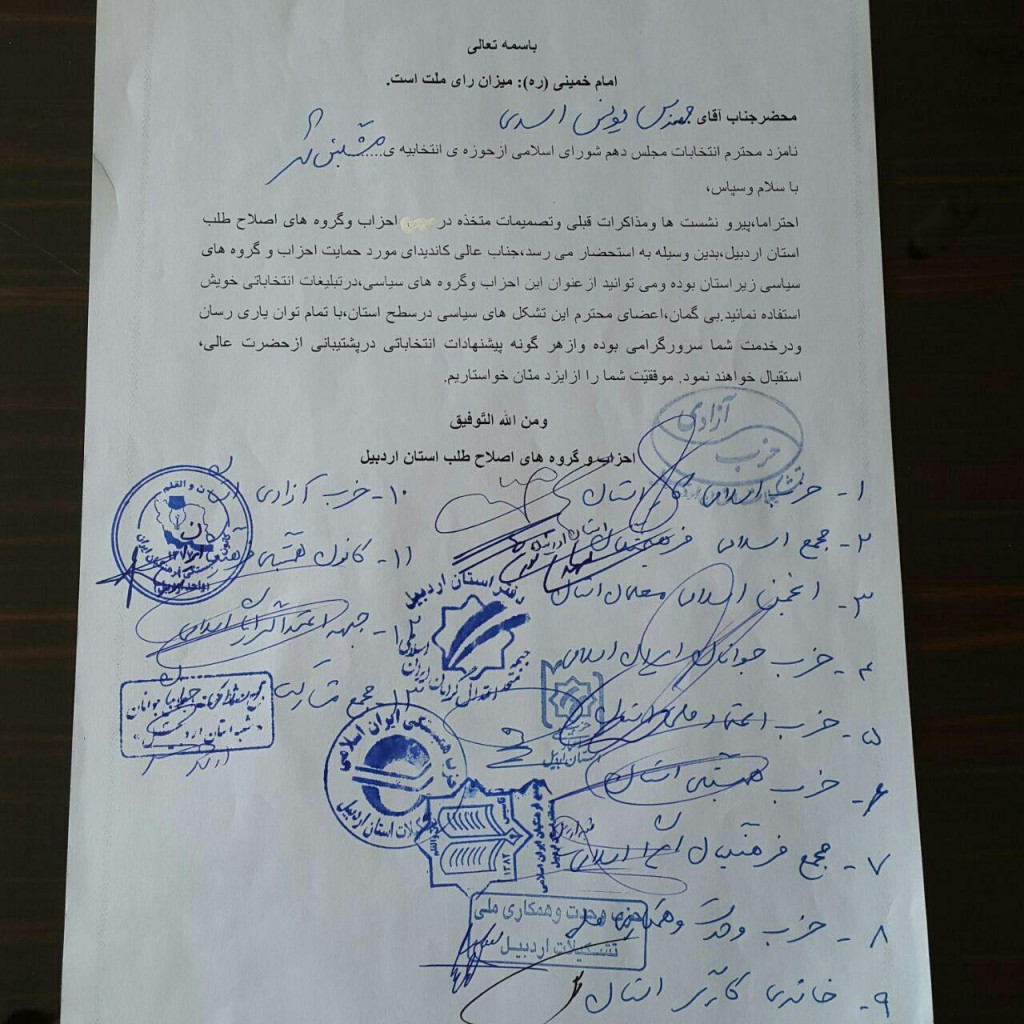 باسمه تعالی
امام خمینی (ره): میزان رای ملت است.
محضرجناب آقای مهندس یونس اسدی
نامزد محترم انتخابات مجلس دهم شورای اسلامی ازحوزه ی انتخابیه ی..... مشگین شهر
با سلام وسپاس،
احتراما،پیرو نشست ها ومذاکرات قبلی وتصمیمات متخذه در احزاب وگروه های اصلاح طلب
استان اردبیل،بدین وسیله به استحضار می رسد،جناب عالی کاندیدای مورد حمایت احزاب و گروه های
سیاسی زیراستان بوده ومی توانید ازعنوان این احزاب وگروه های سیاسی،درتبلیغات انتخاباتی خویش
استفاده نمائید.بی گمان،اعضای محترم این تشکل های سیاسی درسطح استان،با تمام توان یاری رسان
ودرخدمت شما سرورگرامی بوده وازهر گونه پیشنهادات انتخاباتی درپشتیبانی ازحضرت عالی،
استقبال خواهند نمود. موفقیّت شما را ازایزد منّان خواستاریم.
ومن الله التوفیق
احزاب و گروه های اصلاح طلب استان اردبیل
حزب آزادی
۱- حزب اسلامی کار استان
۲- مجمع اسلامی فرهنگیان
۳- انجمن اسلامی معلمان استان
۴- حزب جوانان ایران اسلامی
۵- حزب اعتماد ملی استان
۶- حزب همبستگی استان
۷- مجمع فرهنگیان ایران اسلامی
۸- حزب وحدت و همکاری ملی
۹- خانه ی کارگر استان
۱۰- حزب آزادی
۱۱- کانون همبستگی فرهنگیان
جبهه اعتدالگرایان
۱۳- مجمع
دفتر استان اردبیل
جبهه متحد اعتدال گرایان ایران اسلامی
حزب همبستگی ایران اسلامی
تشکیلات استان اردبیل
مجمع فرهنگیان ایران اسلامی
۱۳۸۲
حزب وحدت و همکاری ملی
تشکیلات اردبیل
جوانان
شعبه استان اردبیل